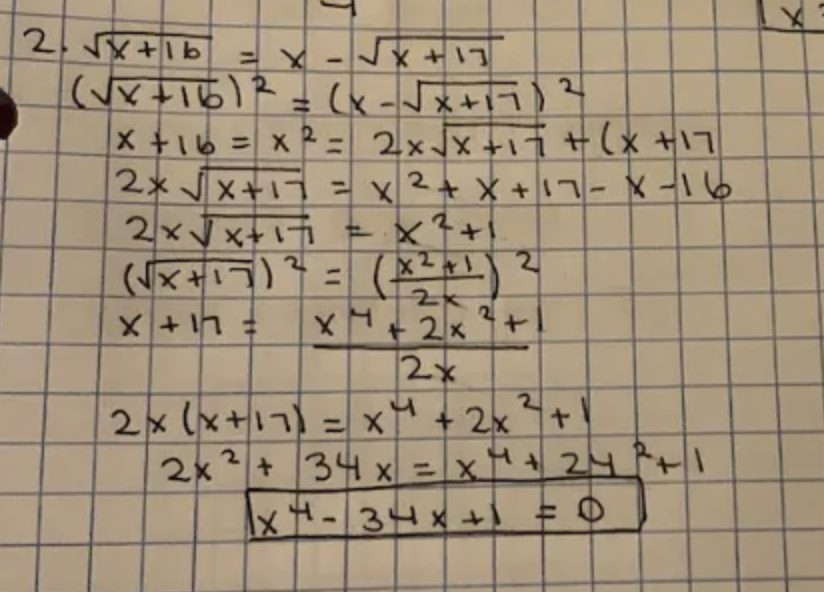 4
x
2. √x+16 = x - √x+17
(√x+16)² = (x-√x+17)²
x+16 = x² = 2x√x+17 + (x+17
2x√x+17 = x² + x + 17 - x - 16
2x√x+17 = x²+1
(√x+17)² = (x²+1/2x)²
x+17 = x⁴+2x²+1/2x
2x(x+17) = x⁴ + 2x² + 1
2x² + 34x = x⁴ + 24² + 1
x⁴ - 34x + 1 = 0